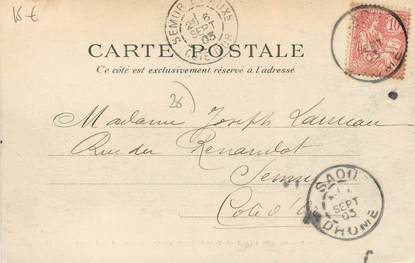 15 €
SEMUR
6
SEPT
03
10
CARTE POSTALE
Ce côté est exclusivement réservé à l'adresse.
26
Madame Joseph
Rue du
Semur
Côte d'Or
SAOU
SEPT
03
DROME